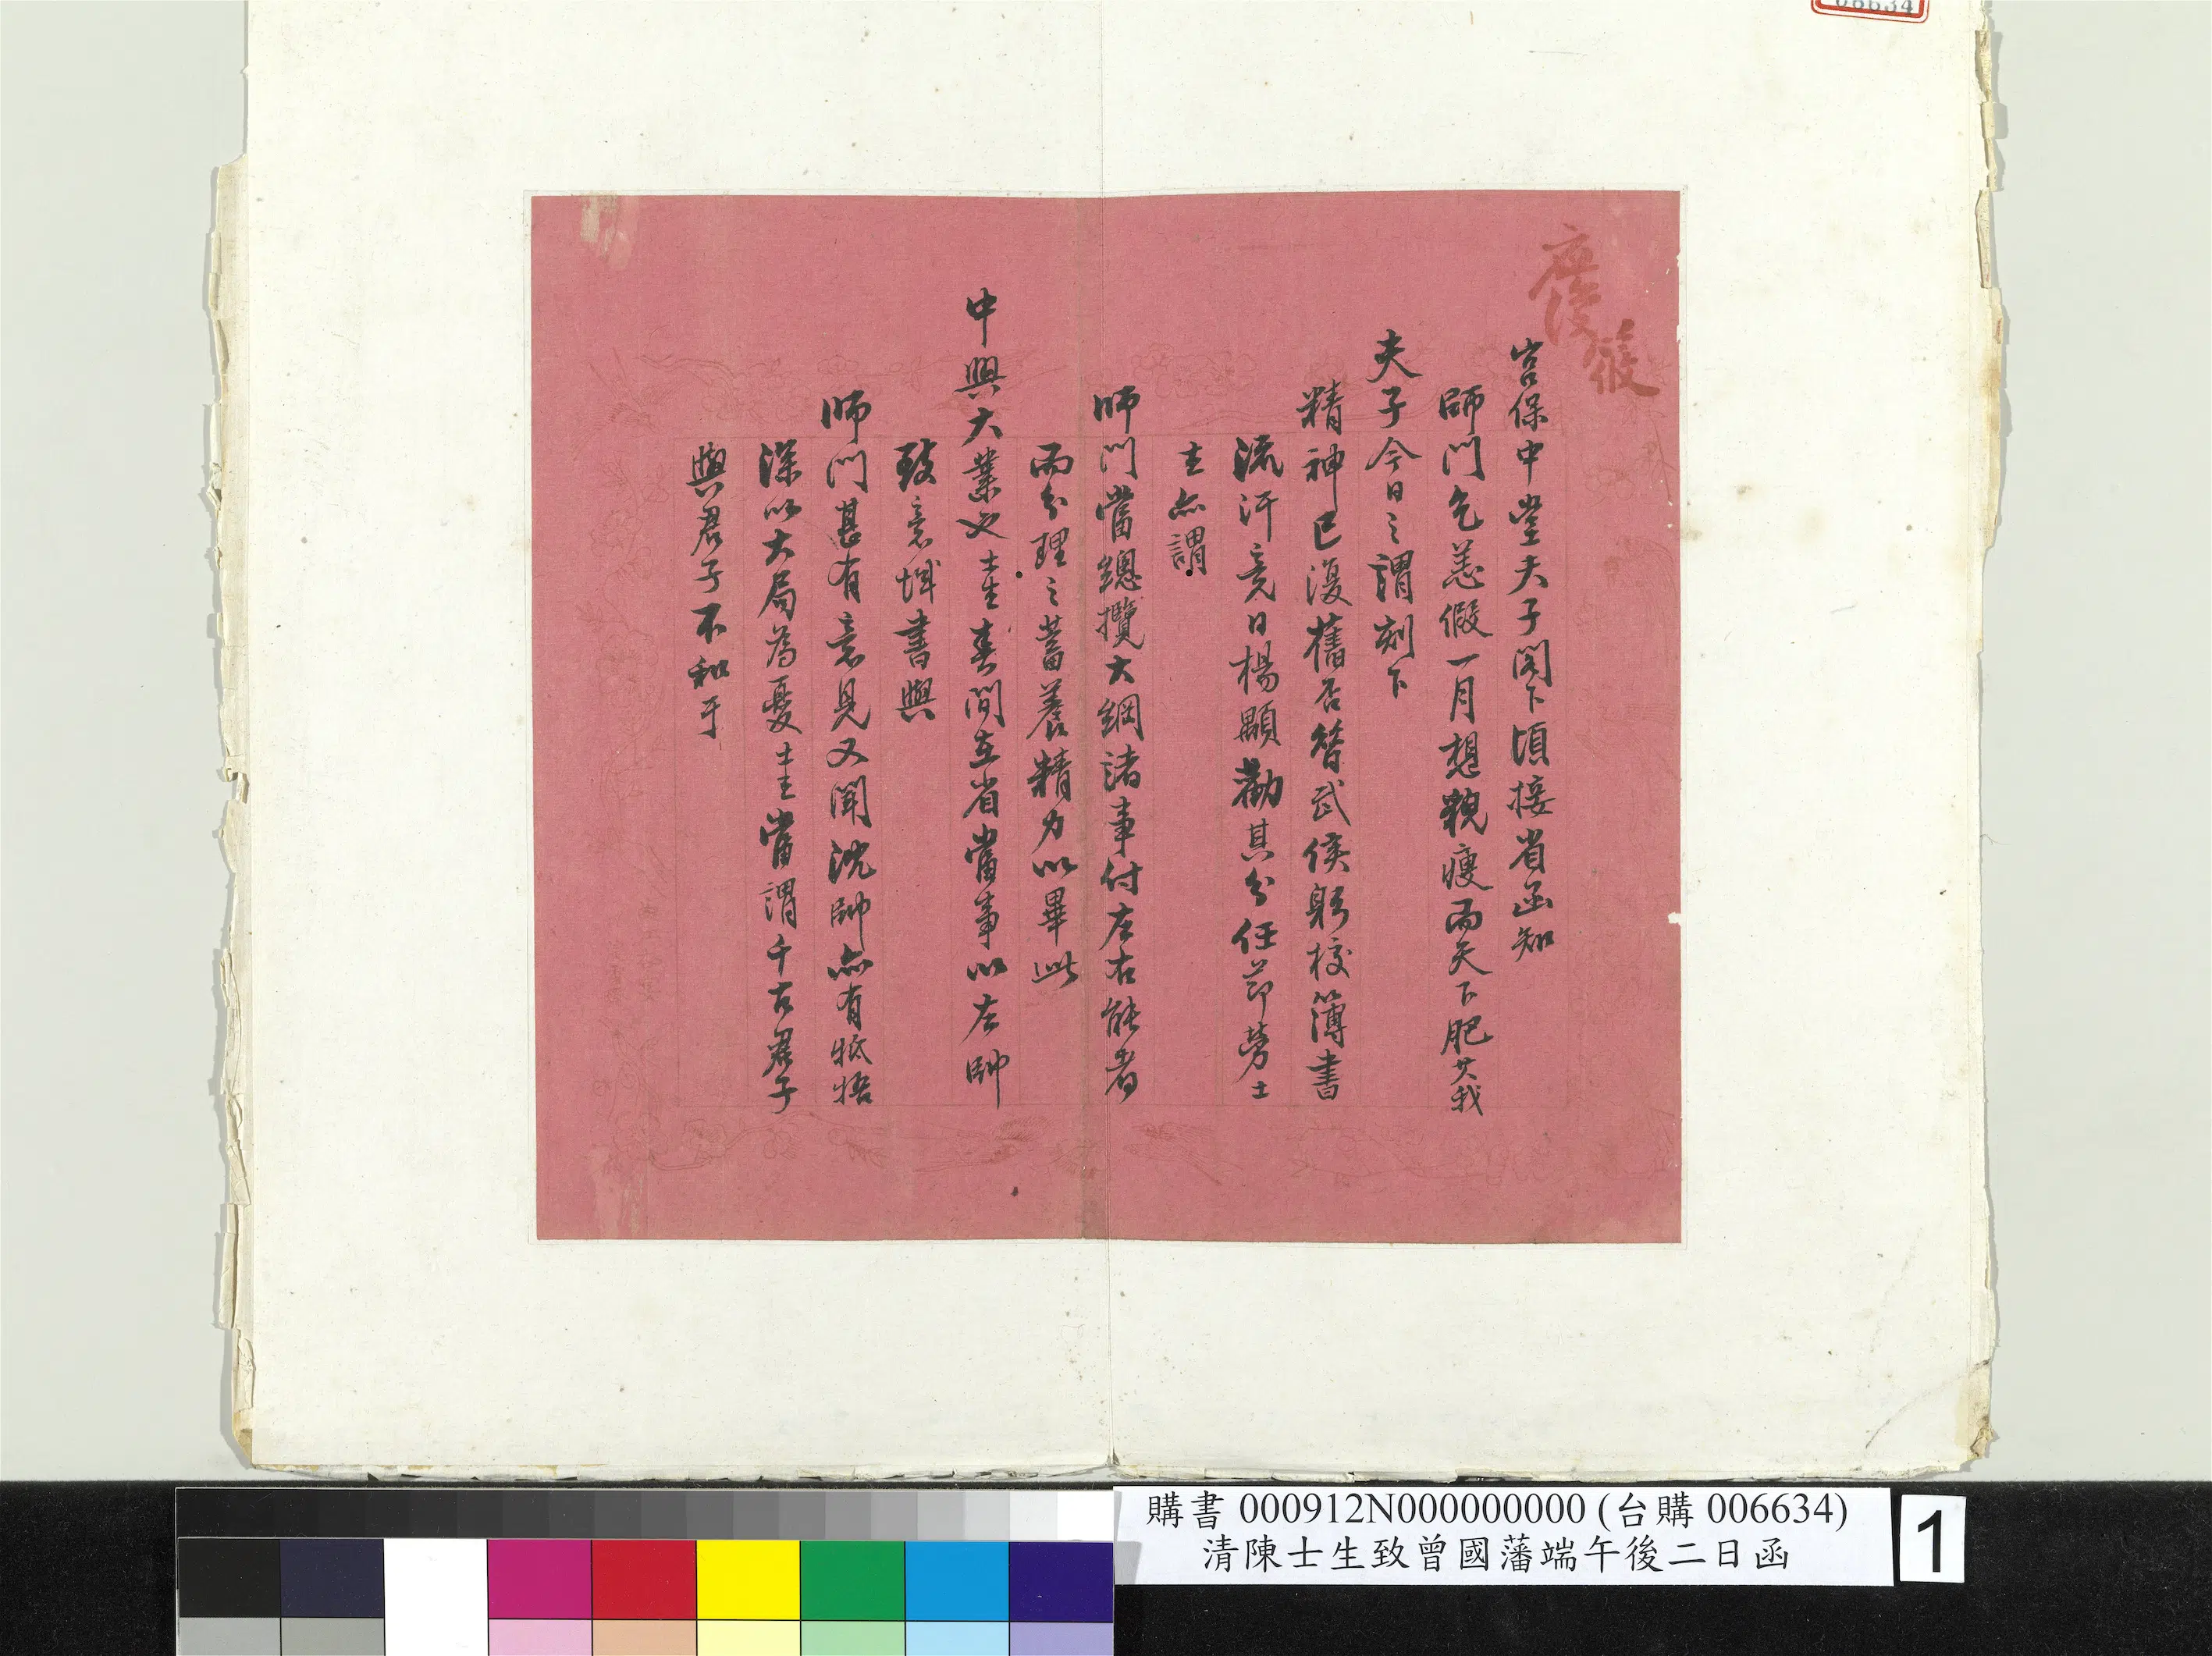 06634
宮保中堂夫子閣下頃接省函知
師門乞恙假一月想貌瘦而天下肥其我
夫子今日之謂刻下
精神已復舊否昝武侯躬校簿書
流汗竟日楊顒勸其分任節勞士
主亦謂
師門當總攬大綱諸事付左右能者
而分理之蓄養精力以畢此
中興大業也士生春間在省嘗事以左帥
致意馘書與
師門甚有意見又聞沈帥亦有牴牾
深以大局為憂士生嘗謂千古君子
與君子不和于
購書 000912N000000000 (台購 006634)
清陳士生致曾國藩端午後二日函
1